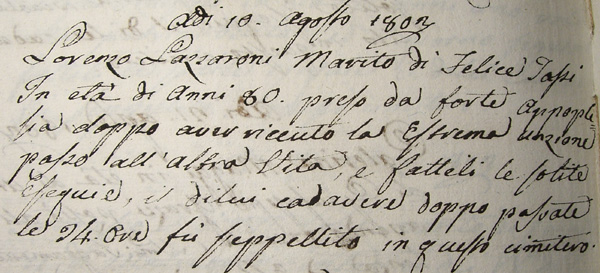 Adi 10. Agosto 1802
Lorenzo Lazzaroni Marito di Felice Tassi
In età di Anni 80. preso da forte Appople
sia doppo aver riceuto la Estrema unzione
passo all'altra Vita, e fatteli le solite
esequie, il dilui cadavere doppo passate
le 24. Ore fù seppellito in questo cimitero.